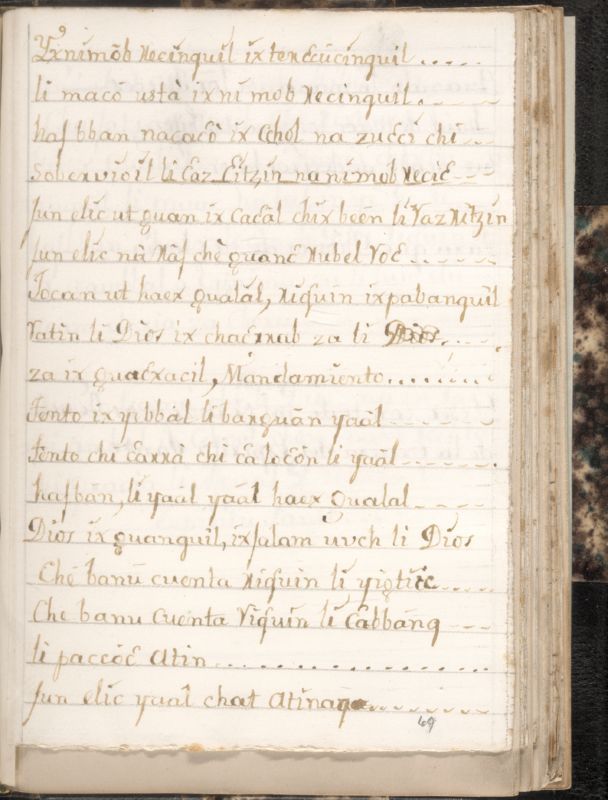 Yxnimôb Kecinquil ix ten Ecucinquil .....
li macô ustà ix ni mob Kecinquil.
has bban nacacô ix Cchol na zucci chi
Sobervioil li Eaz Eitzin na nimob KeciE
Jun elic ut quan ix Cacâl chix beên li Vaz Ritzin
Jun elic nà Nàs chê quanE Kubel VoE
Tocan ut haex qualal, Kiquin ixpabanquil
Vatin li Dios ix chaExab za li Dios
za ix quaExacil, Mandamiento........
Fento ix yibbâl li banquân yaâl
Fento chi Eaxnâ chi Eâ lo Eôn li yaâl
hasban, li yaal yaâl haex qualal
Dios ix quanquil, ixjulam uvch li Dios
Chê banu cuenta Kiquin li yiotiic
Che banu Cuenta Viquin li Cabbanq
li paccôE Atin
Jun elic yaal chat Atinaqo
69